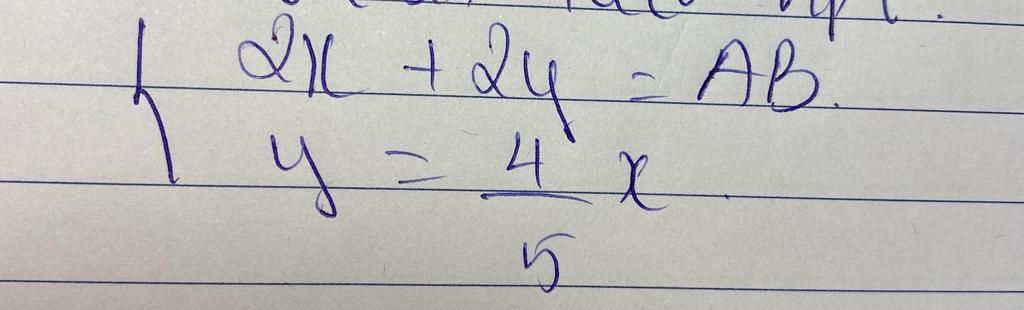 2x + 2y = AB.
y = 4/5 x